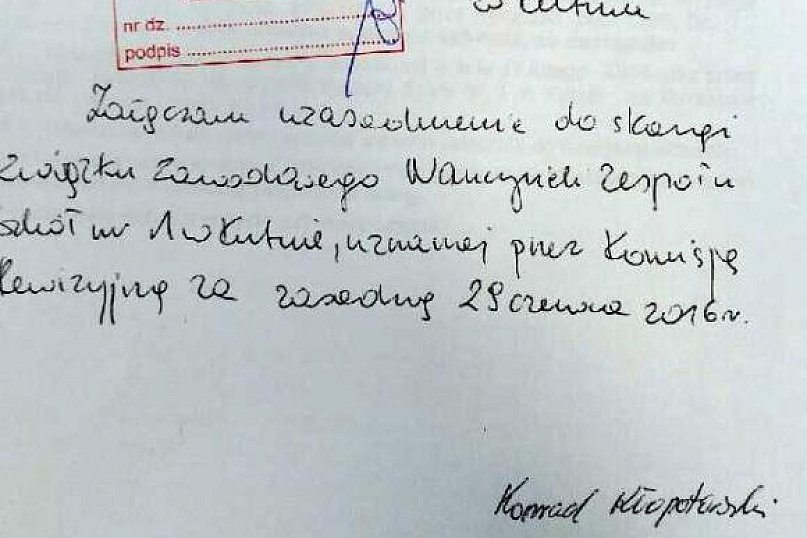 w Kutnie
nr dz.
podpis
Załączam uzasadnienie do skargi
Związku Zawodowego Wauczycieli Zespołu
Szkół nr 1 w Kutnie, uznanej przez Komisję
Rewizyjną za zasadną 29 czerwca 2016 r.
Konrad Kłopotowski